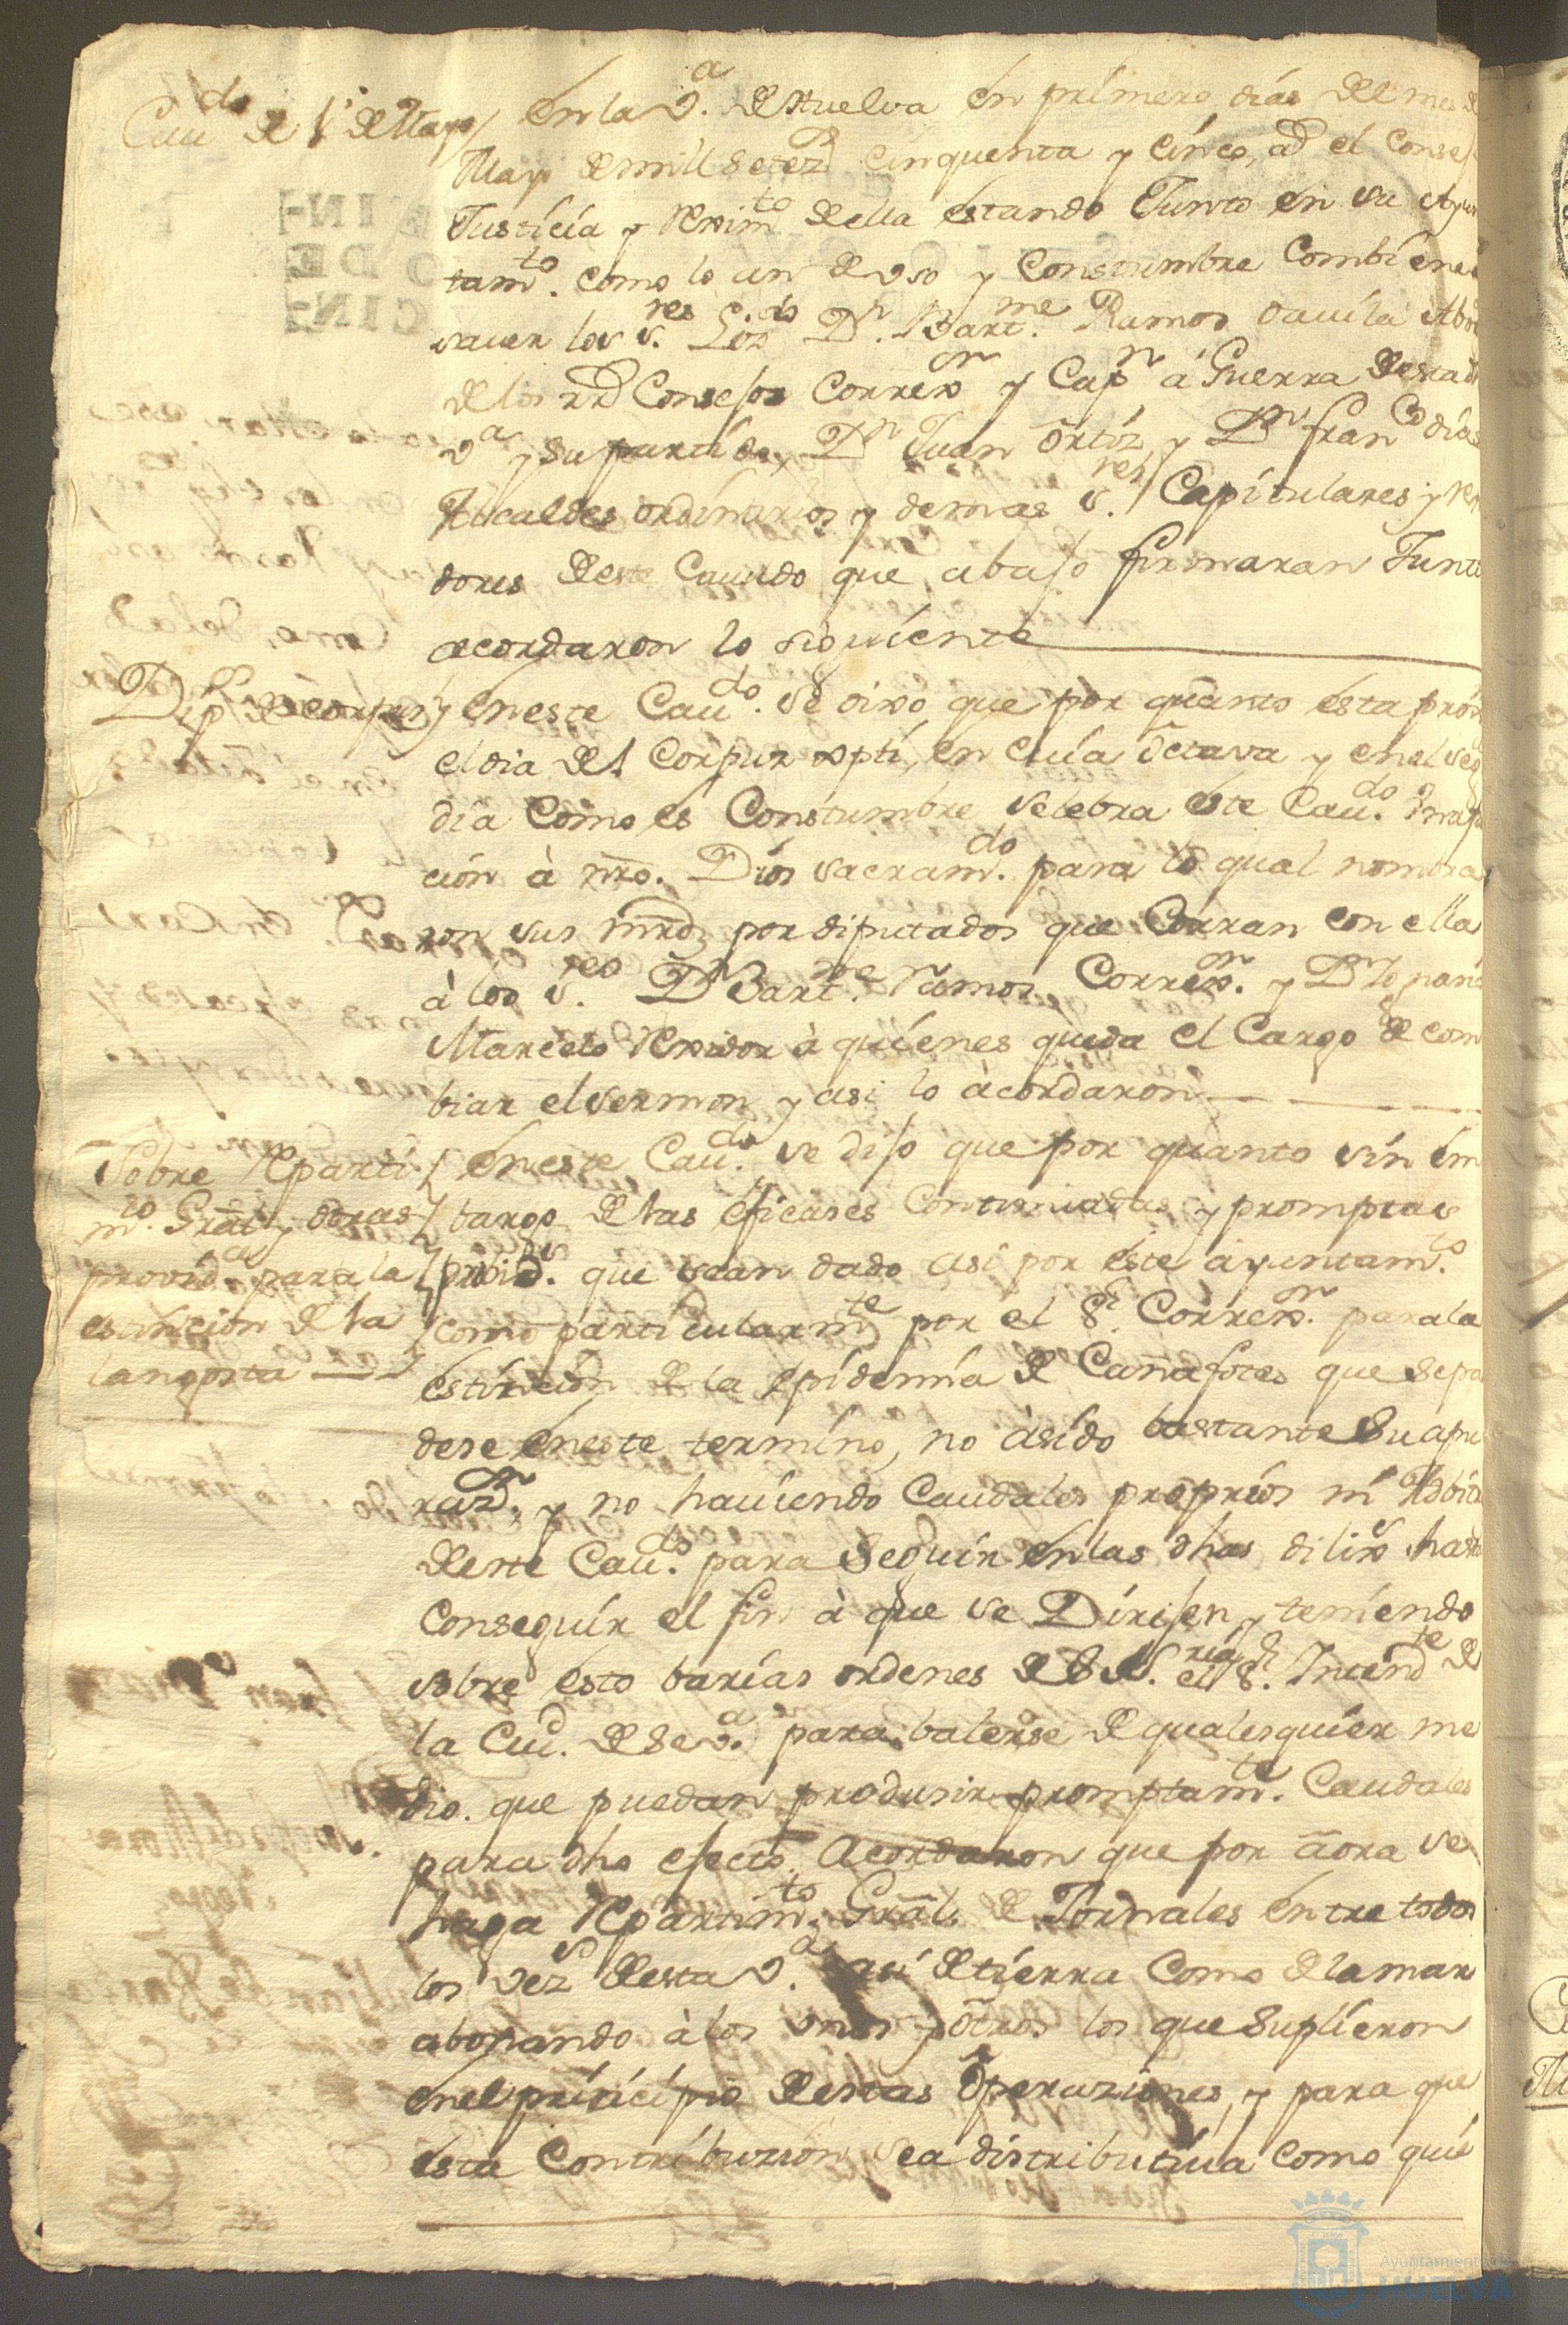 Cau.do de 1º de Mayo
En la v.a de Huelva en primero días del mes de
Mayo de mill setez.s cinquenta y cinco, a.d el Consejo
Justicia y Reximto della estando Junto en su Ayun
tamto. como lo an de uso y Constumbre Combiene a
sauer los s.res Lizdo D.n Bartme. Ramos Dauila Abog
de los rr.s Consejos Correx.or y Cap.n a Guerra de esta d
v.a y su partido, D.n Juan Ortíz, y D.n Fran.co días
Alcaldes ordinarios y demas s.res Capitulares y Rex
dores deste Cauildo que abajo firmaran Junto
acordaron lo siguiente
Dip.s de corpus
En este Cau.do se dixo que por quanto esta próx
el dia del Corpus xpti, en cuía octava y en el seg
día como es Constumbre selebra este Cau.do
ción à nro. Dios sacram.do para lo qual nombra
ron sus mrds por diputados que Corran con ella
à los s.res D.n Bart.me Ramos Correx.or y D.n
Marcelo Rexidor à quíenes queda el Cargo de com
biar el sermon y asi lo àcordaron
Sobre Reparti
m.to Gral y otras
provid.as para la
estincion de la
langosta
En este Cau.do se dijo que por quanto sin em
bargo de las eficases Continuadas y promptas
provid.s que sean dado asi por éste ayuntam.to
como particularmte por el S.r Correx.or para la
estinción de la epidemía de Cañafotes que se pa
dese en este termino, no àsido bastante su apu
raz.on y no hauiendo Caudales propríos ni Advitr
deste Cau.do para Seguir en las dhas dilix.s hasta
Conseguir el fin à que se Dirijen, y teniendo
sobre esto barías ordenes de S S.ria el S.r Intend.te de
la Ciud. de Sev.a para balerse de qualesquíer me
dio. que puedan produsir promptam.te Caudales
para dho efecto. Acordaron que por aora se
haga Repartim.to Gral. de Jornales entre todos
los vez.s desta v.a asi de tierra Como de la mar
abonando à los unos y otros los que Suplieron
en el prínicipio destas operaziones, y para que
esta Contribuzion sea distributiua como quíe
Ayuntamiento de
HUELVA